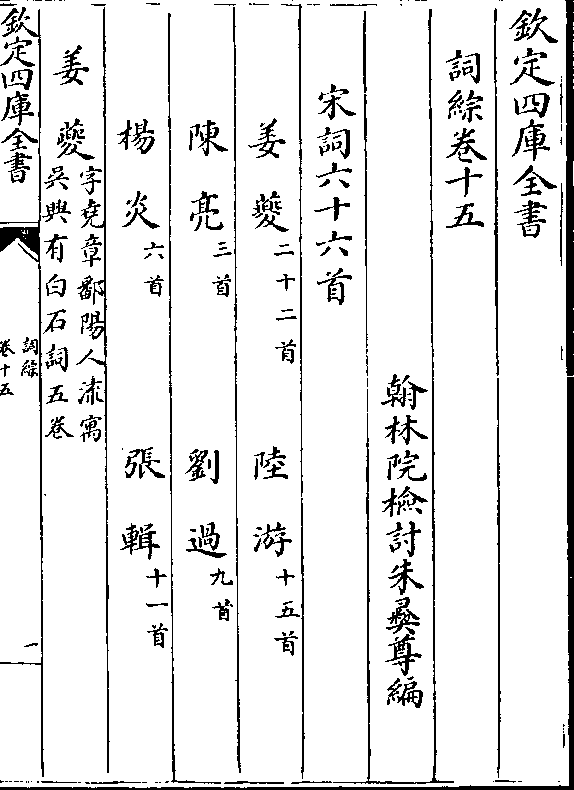 欽定四庫全書
詞綜卷十五
翰林院檢討朱彞尊編
宋詞六十六首
姜夔二十二首 陸游十五首
陳亮三首 劉過九首
楊炎六首 張輯十一首
姜夔字堯章鄱陽人流寓
吳興有白石詞五卷
欽定四庫全書
詞綜
卷十五
一